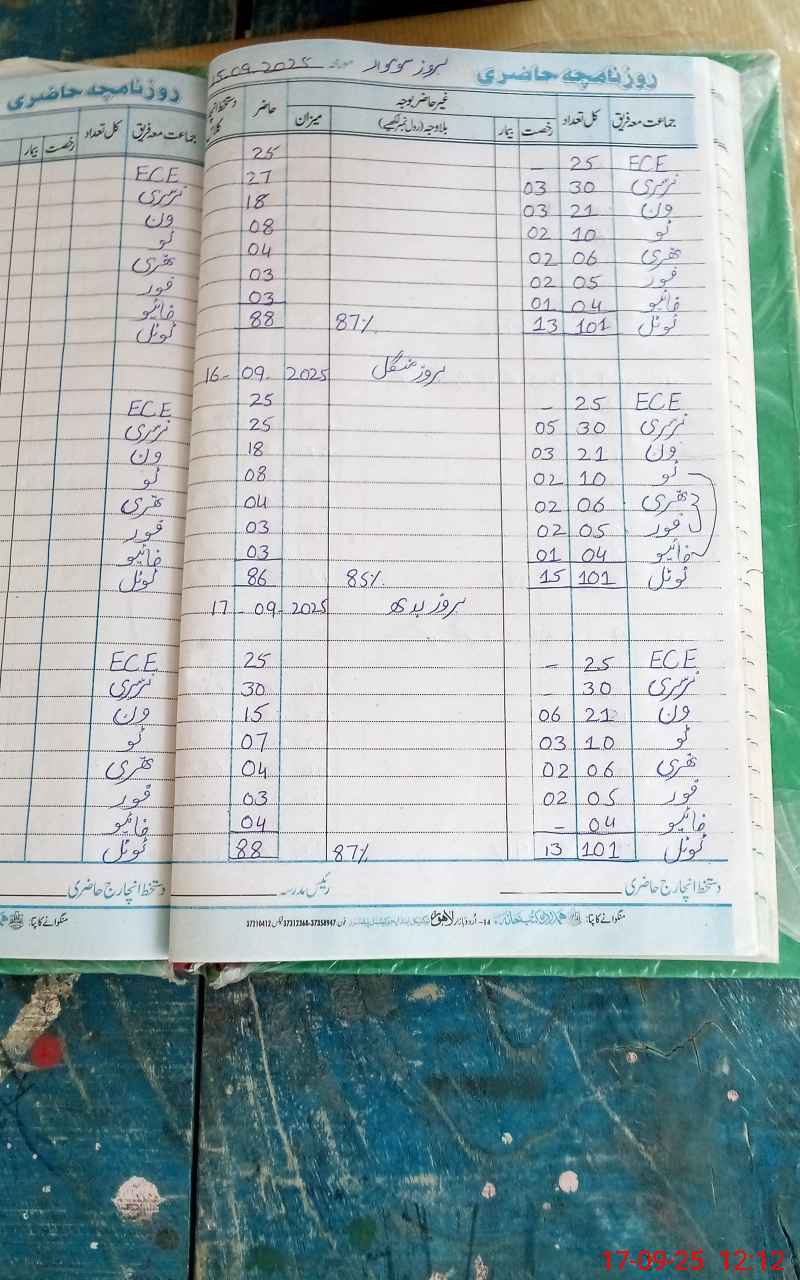 روزنامچہ حاضری بروز سوموار مورخہ 15-09-2025
جماعت معہ فریق کل تعداد رخصت بیمار غیر حاضر بوجہ بلا وجہ (رول نمبر لکھیے) میزان حاضر
ECE 25 - 25
نرسری 30 03 27
ون 21 03 18
ٹو 10 02 08
تھری 06 02 04
فور 05 02 03
فائیو 04 01 03
ٹوٹل 101 13 87% 88
بروز منگل 16-09-2025
ECE 25 - 25
نرسری 30 05 25
ون 21 03 18
ٹو 10 02 08
تھری 06 02 04
فور 05 02 03
فائیو 04 01 03
ٹوٹل 101 15 85% 86
بروز بدھ 17-09-2025
ECE 25 - 25
نرسری 30 - 30
ون 21 06 15
ٹو 10 03 07
تھری 06 02 04
فور 05 02 03
فائیو 04 - 04
ٹوٹل 101 13 87% 88
دستخط انچارج حاضری رئیس مدرسہ
منگوانے کا پتا: 14-اردو بازار لاہور فون 37358947-37312368 فیکس 37310412
روزنامچہ حاضری
جماعت معہ فریق کل تعداد رخصت بیمار
ECE
نرسری
ون
ٹو
تھری
فور
فائیو
ٹوٹل
ECE
نرسری
ون
ٹو
تھری
فور
فائیو
ٹوٹل
ECE
نرسری
ون
ٹو
تھری
فور
فائیو
ٹوٹل
دستخط انچارج حاضری
منگوانے کا پتا:
17-09-25 12:12